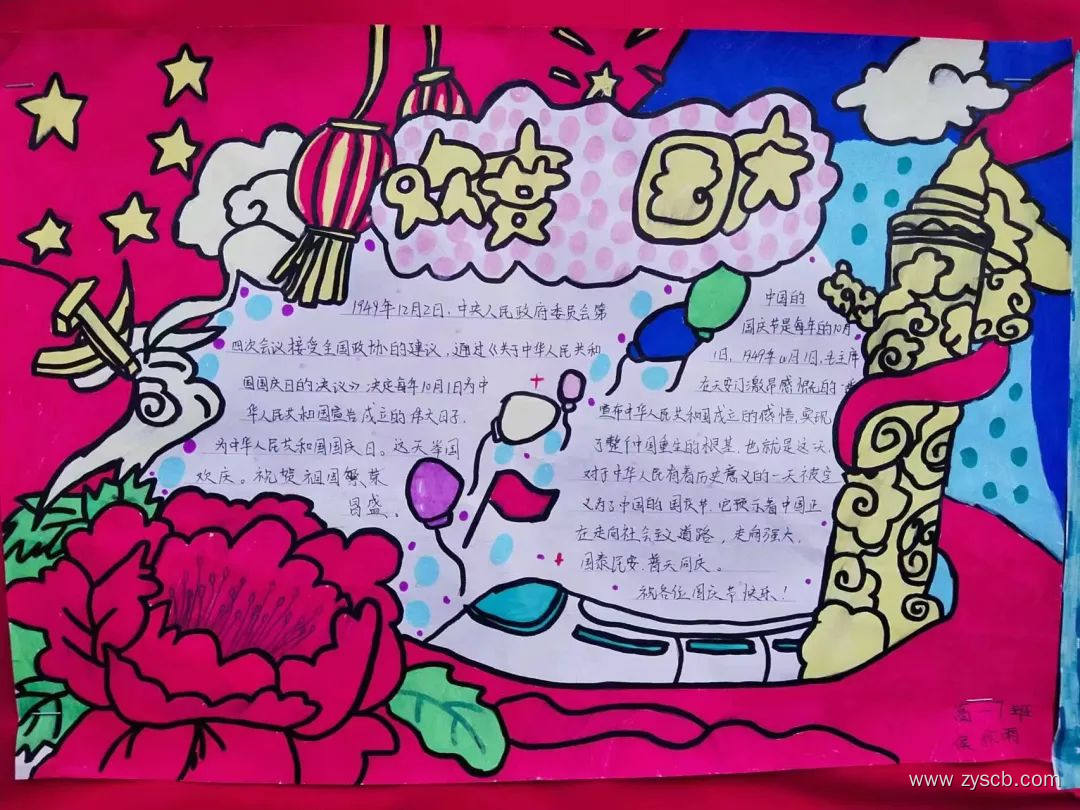 欢度 国庆
1949年12月2日,中央人民政府委员会第
四次会议接受全国政协的建议,通过《关于中华人民共和
国国庆日的决议》决定每年10月1日为中
华人民共和国宣告成立的伟大日子,
为中华人民共和国国庆日。这天举国
欢庆。祝贺祖国繁荣
昌盛。
中国的
国庆节是每年的10月
1日,1949年10月1日,毛主席
在天安门激昂感慨的
宣布中华人民共和国成立的感悟,实现
了整个中国重生的根基,也就是这天,
对于中华人民有着历史意义的一天被定
义为了中国的国庆节,它预示着中国正
在走向社会主义道路,走向强大,
国泰民安,普天同庆。
祝各位国庆节快乐!
高一7班
www.zyscb.com